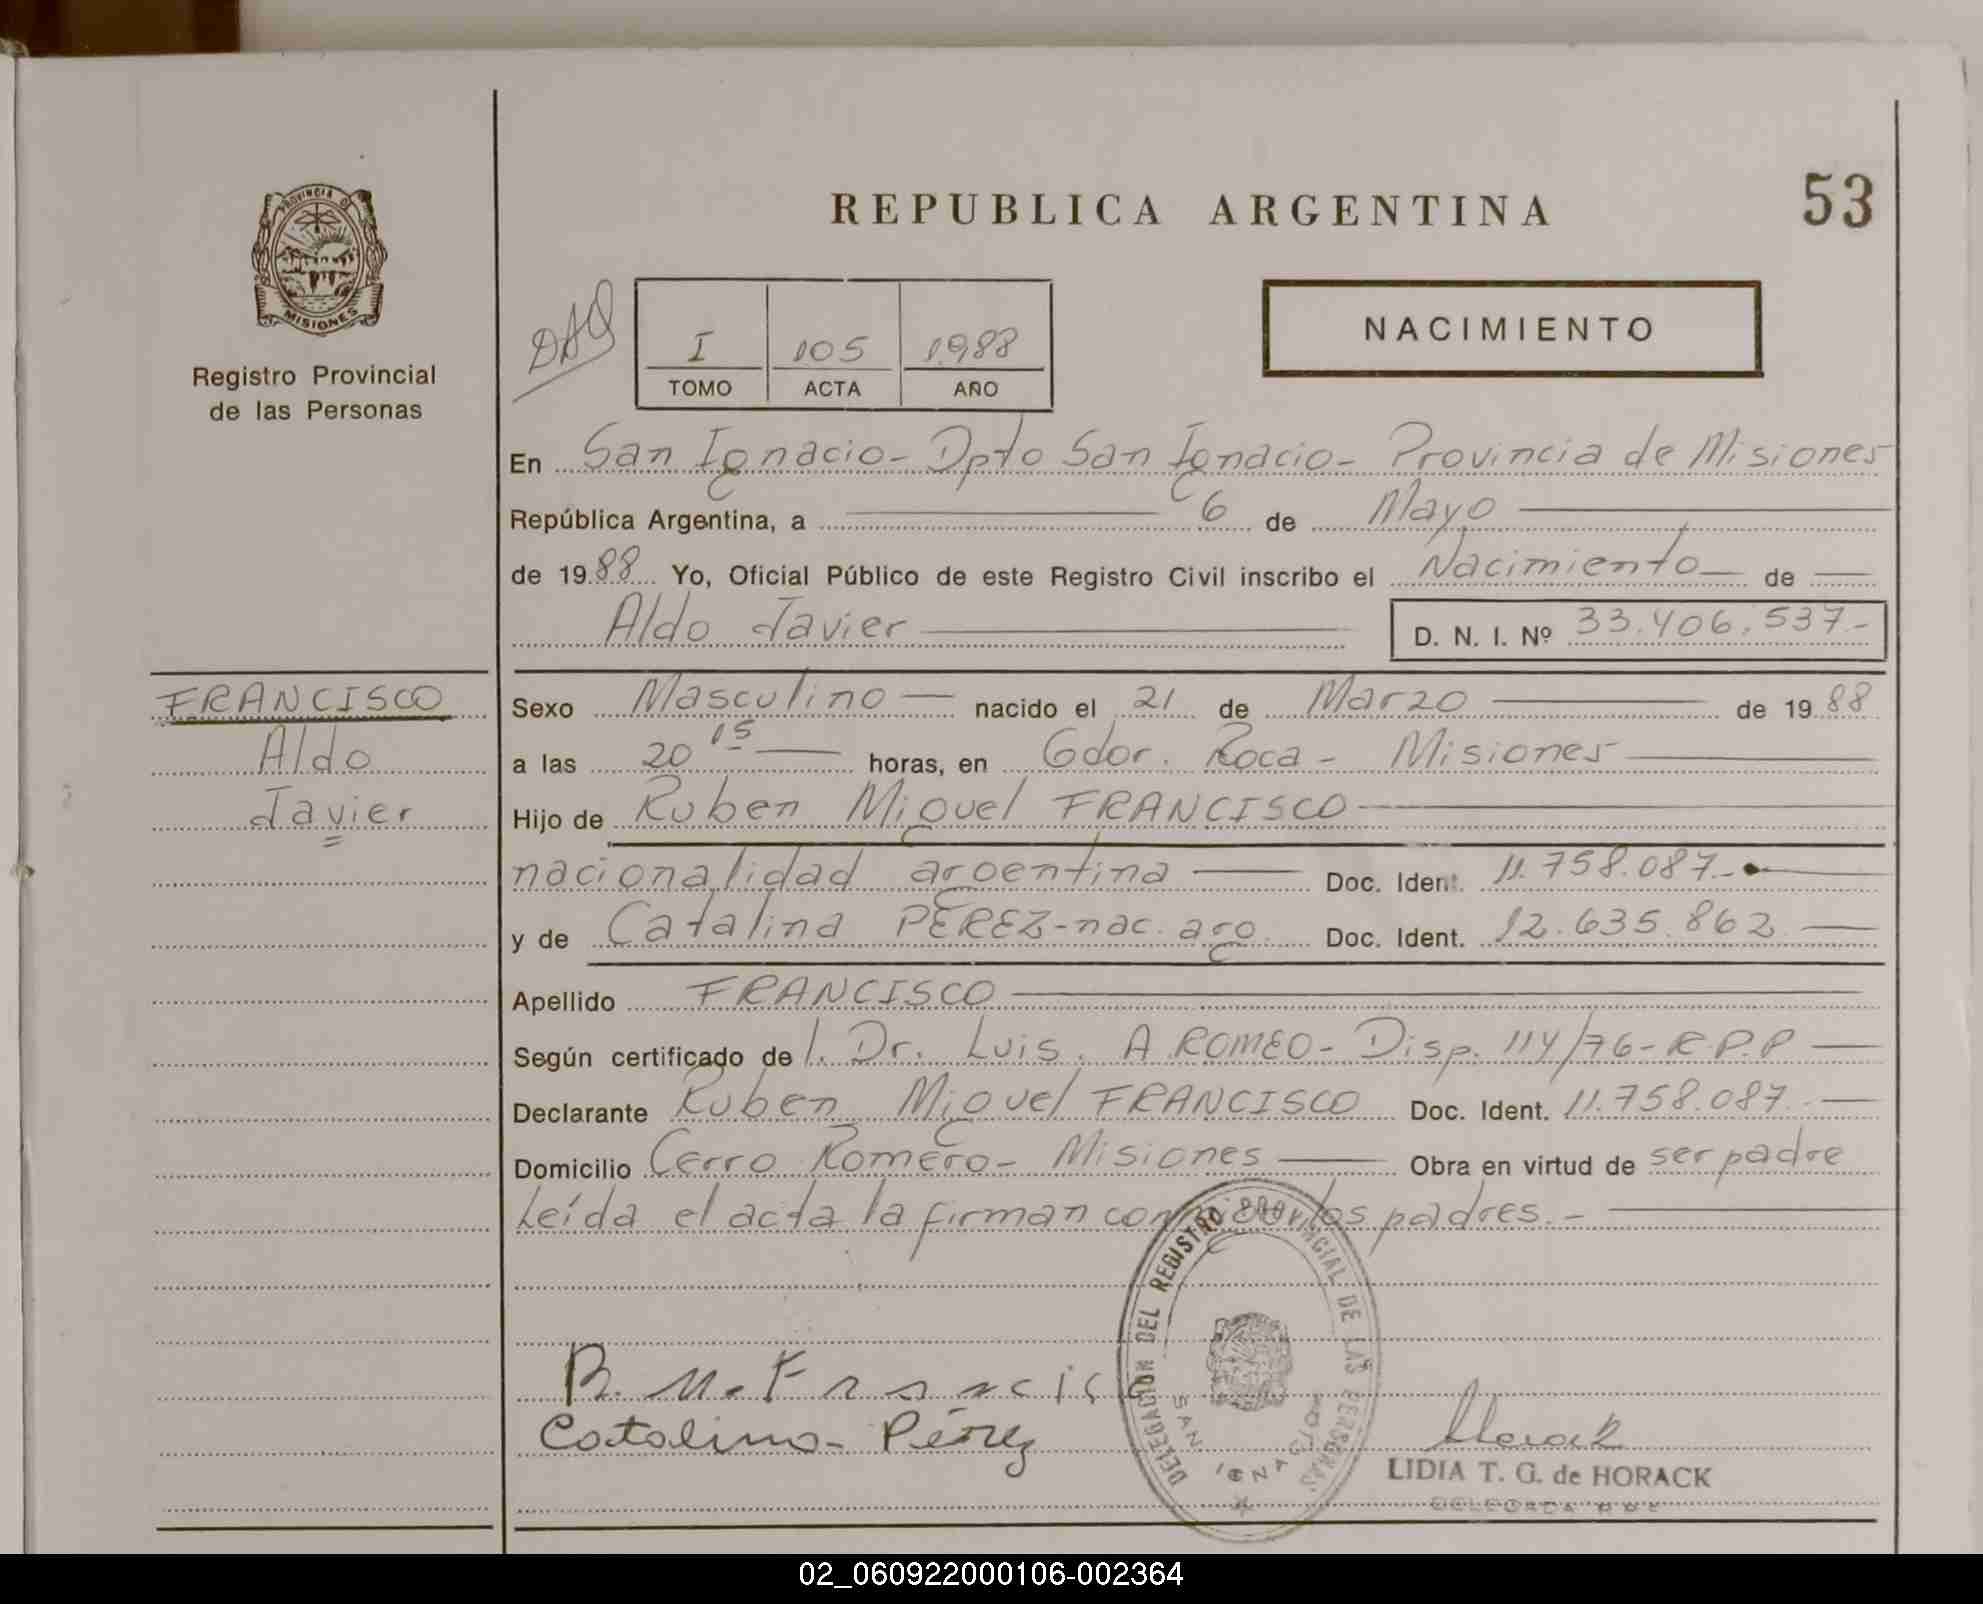 REPUBLICA ARGENTINA
53
PROVINCIA DE
MISIONES
Registro Provincial
de las Personas
I 105 1988
TOMO ACTA AÑO
NACIMIENTO
En San Ignacio - Dpto San Ignacio - Provincia de Misiones
República Argentina, a 6 de Mayo
de 19 88 Yo, Oficial Público de este Registro Civil inscribo el Nacimiento de
Aldo Javier D. N. I. Nº 33.406.537.-
FRANCISCO
Aldo
Javier
Sexo Masculino nacido el 21 de Marzo de 19 88
a las 20 15 horas, en Gdor. Roca - Misiones
Hijo de Ruben Miguel FRANCISCO
nacionalidad argentina Doc. Ident. 11.758.087.-
y de Catalina PEREZ - nac. arg. Doc. Ident. 12.635.862
Apellido FRANCISCO
Según certificado de l. Dr. Luis. A. ROMEO - Disp. 114/76 - R.P.P
Declarante Ruben Miguel FRANCISCO Doc. Ident. 11.758.087.
Domicilio Cerro Romero - Misiones Obra en virtud de ser padre
Leída el acta la firman conmigo los padres.-
DELEGACION DEL REGISTRO PROVINCIAL DE LAS PERSONAS
SAN IGNACIO
R. M. Francisco
Catalina Pérez
Horack
LIDIA T. G. de HORACK
DELEGADA
02_060922000106-002364